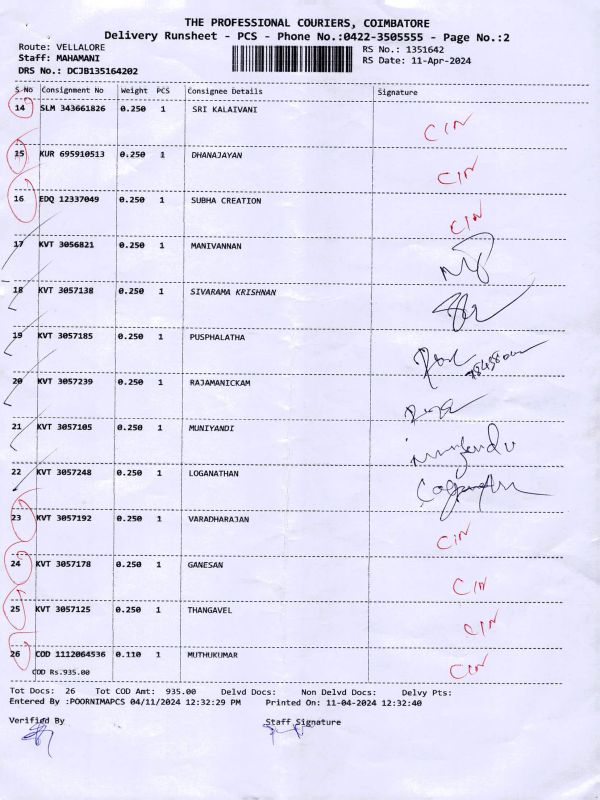 THE PROFESSIONAL COURIERS, COIMBATORE
Delivery Runsheet - PCS - Phone No.:0422-3505555 - Page No.:2
Route: VELLALORE
RS No.: 1351642
Staff: MAHAMANI
RS Date: 11-Apr-2024
DRS No.: DCJB135164202
S No Consignment No Weight PCS Consignee Details Signature
14 SLM 343661826 0.250 1 SRI KALAIVANI CIN
15 KUR 695910513 0.250 1 DHANAJAYAN CIN
16 EDQ 12337049 0.250 1 SUBHA CREATION CIN
17 KVT 3056821 0.250 1 MANIVANNAN
18 KVT 3057138 0.250 1 SIVARAMA KRISHNAN
19 KVT 3057185 0.250 1 PUSPHALATHA
20 KVT 3057239 0.250 1 RAJAMANICKAM
21 KVT 3057105 0.250 1 MUNIYANDI
22 KVT 3057248 0.250 1 LOGANATHAN
23 KVT 3057192 0.250 1 VARADHARAJAN CIN
24 KVT 3057178 0.250 1 GANESAN CIN
25 KVT 3057125 0.250 1 THANGAVEL CIN
26 COD 1112064536 0.110 1 MUTHUKUMAR CIN
COD Rs.935.00
Tot Docs: 26 Tot COD Amt: 935.00 Delvd Docs: Non Delvd Docs: Delvy Pts:
Entered By :POORNIMAPCS 04/11/2024 12:32:29 PM Printed On: 11-04-2024 12:32:40
Verified By Staff Signature